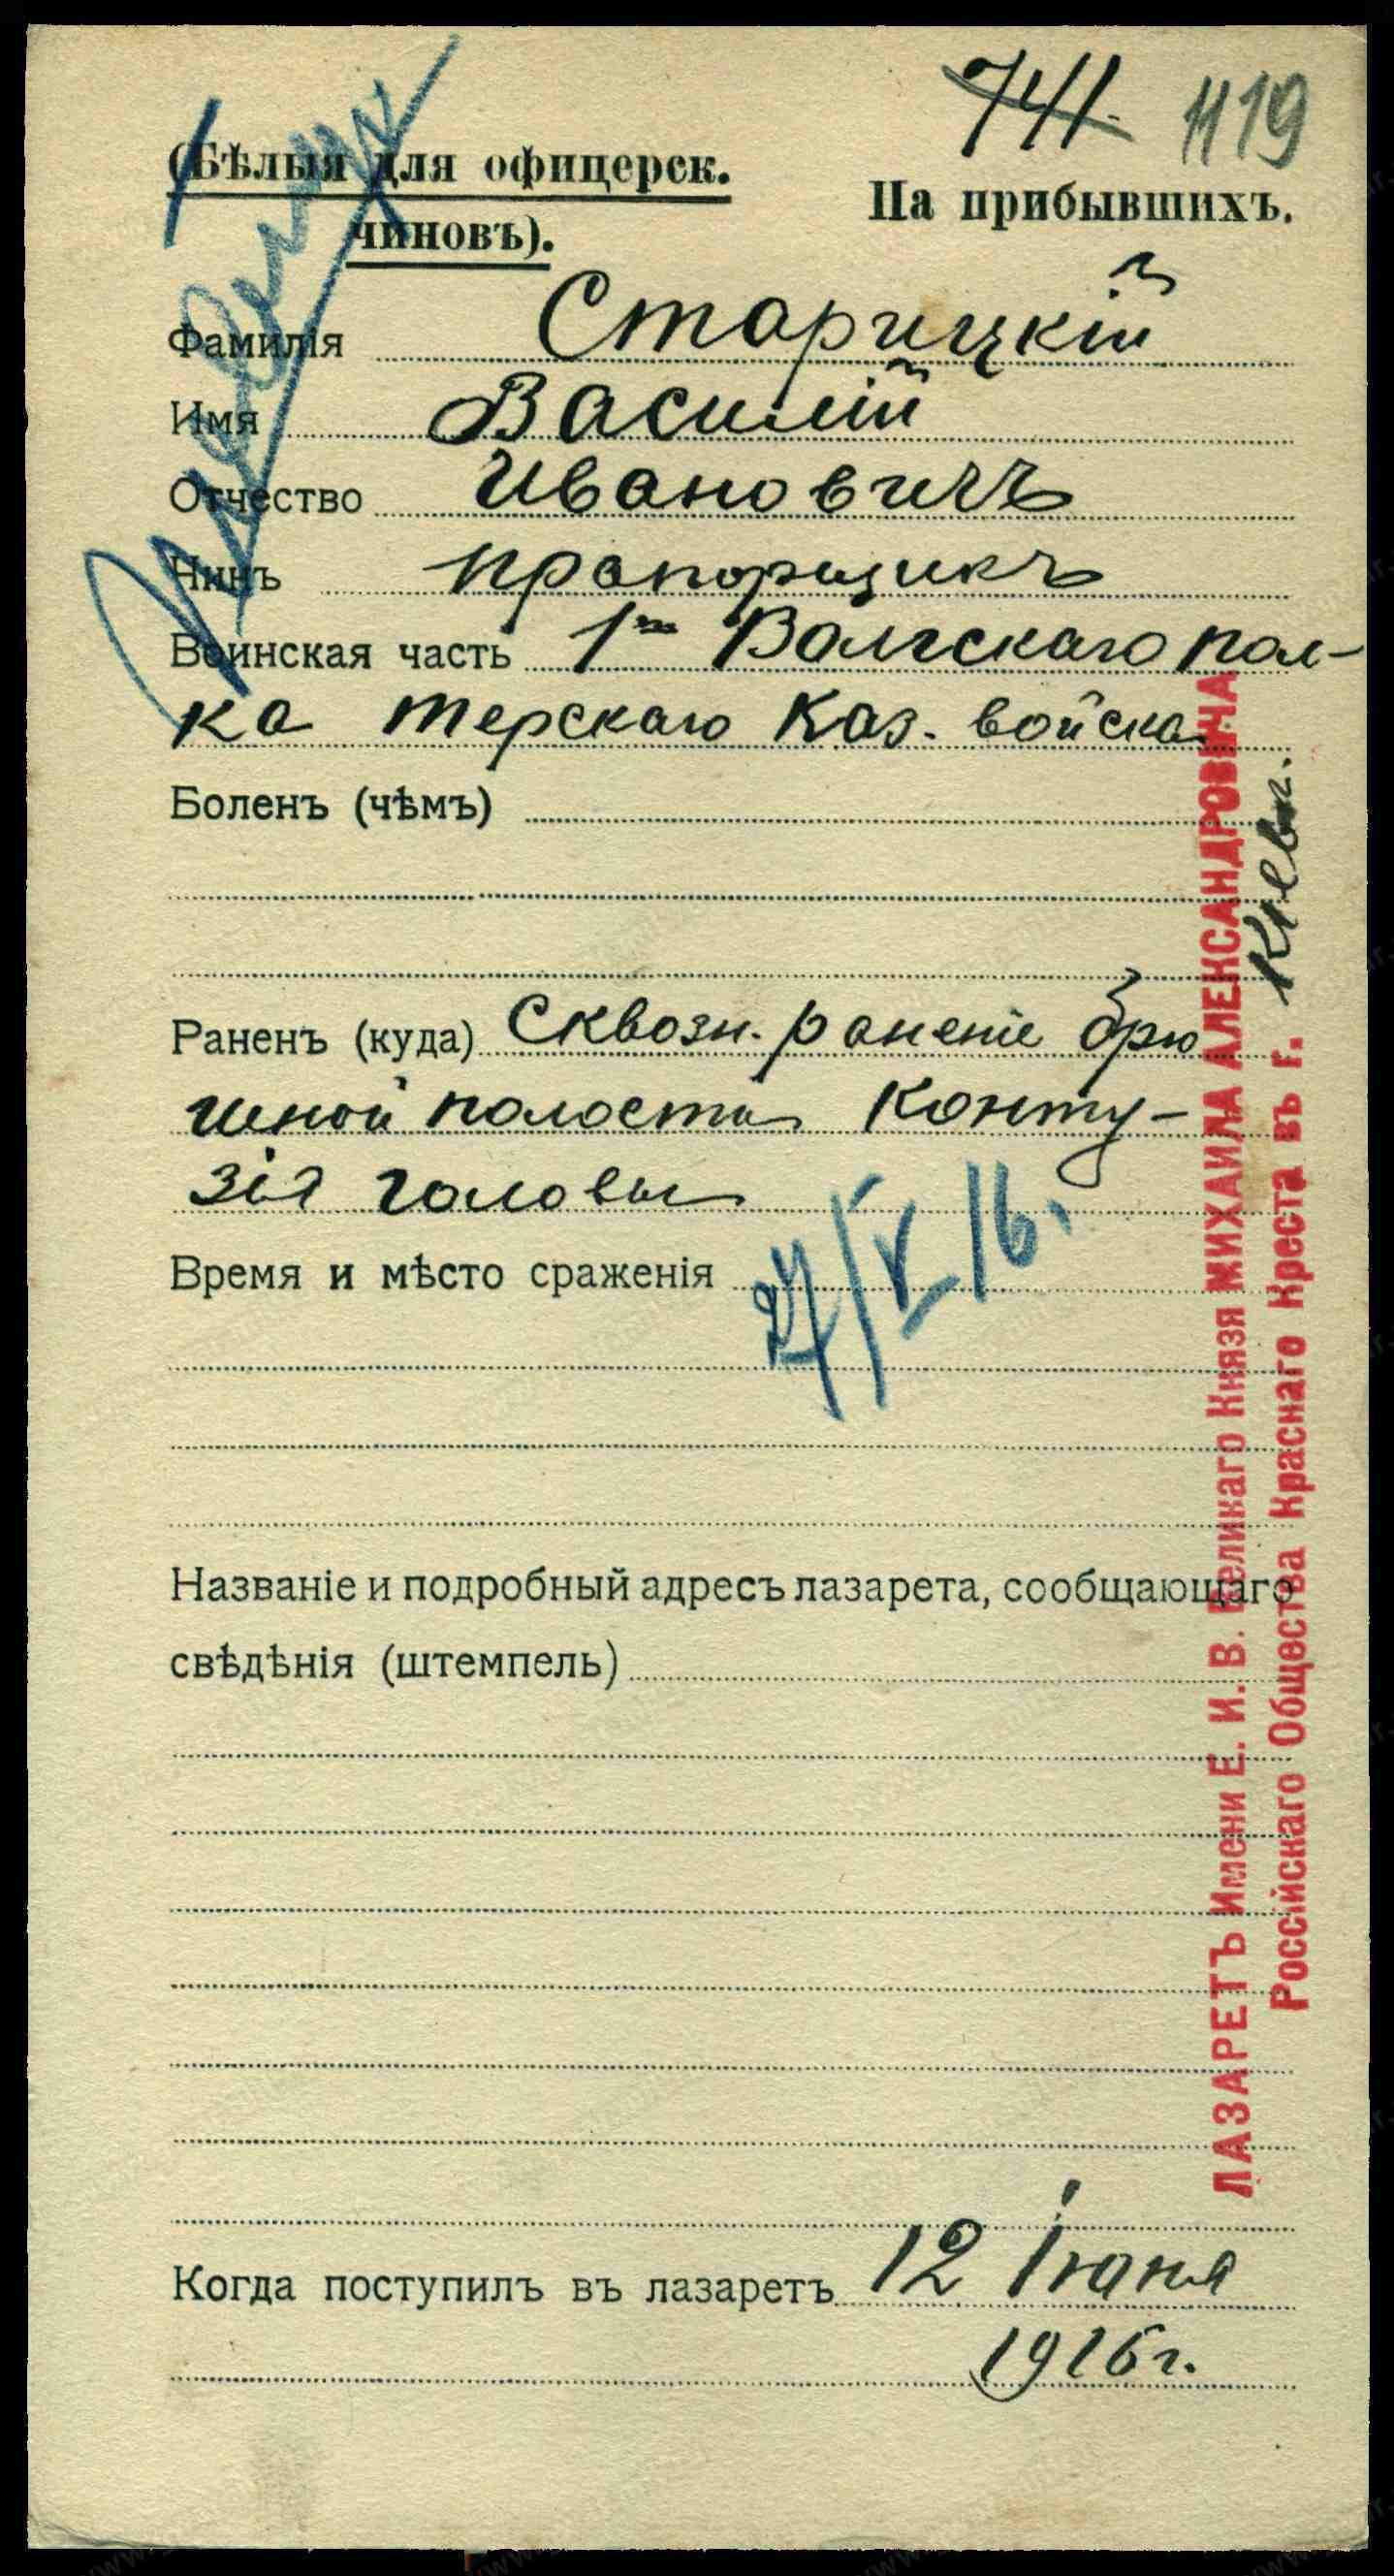 741. 1119
(Бѣлыя для офицерск.
чиновъ).
На прибывшихъ.
Фамилія Старицкій
Имя Василій
Отчество Ивановичъ
Чинъ прапорщикъ
Воинская часть 1го Волгскаго пол-
ка Терскаго Каз. войска
Боленъ (чѣмъ)
Раненъ (куда) Сквозн. раненіе брю
шной полости Конту-
зія головы
Время и мѣсто сраженія 27/V 16.
Названіе и подробный адресъ лазарета, сообщающаго
свѣдѣнія (штемпель)
ЛАЗАРЕТЪ Имени Е. И. В. Великаго Князя МИХАИЛА АЛЕКСАНДРОВИЧА
Россійскаго Общества Краснаго Креста въ г. Кіевѣ.
Когда поступилъ въ лазаретъ 12 Іюня
1916 г.